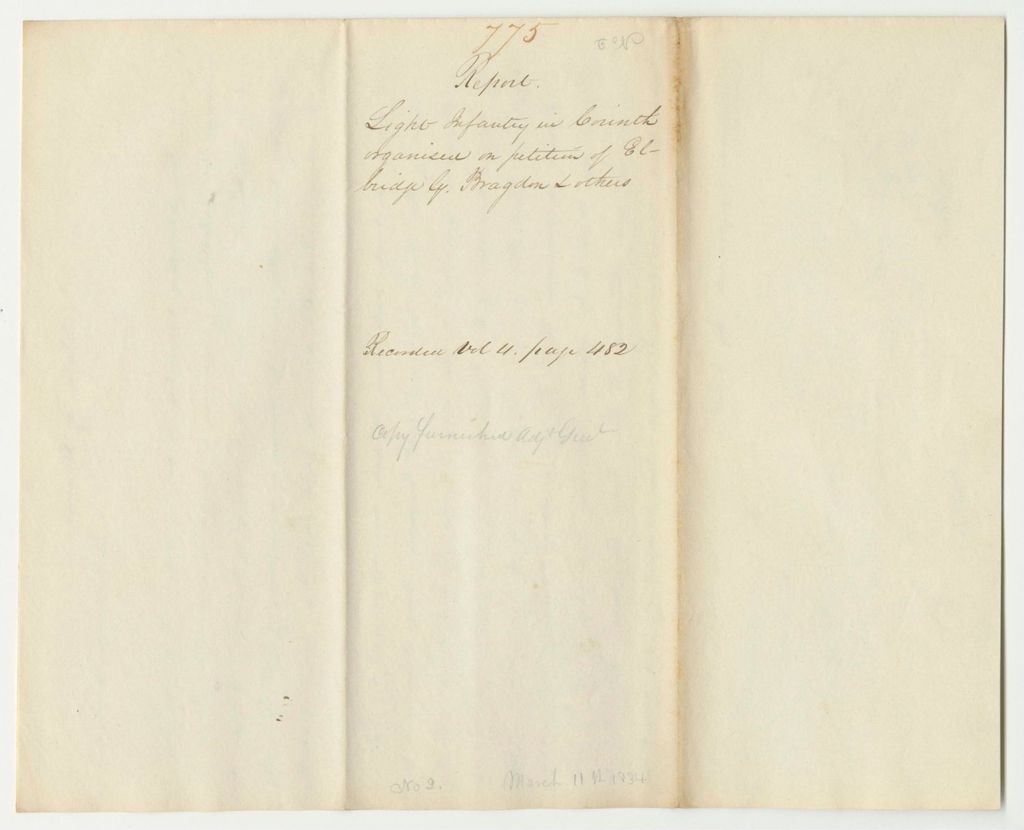 775
No 2
Report.
Light Infantry in Corinth
organised on petition of El-
bridge G. Bragdon & others
Recorded Vol 4. page 482
Copy furnished Adjt Genl
No 2. March 11th 1834